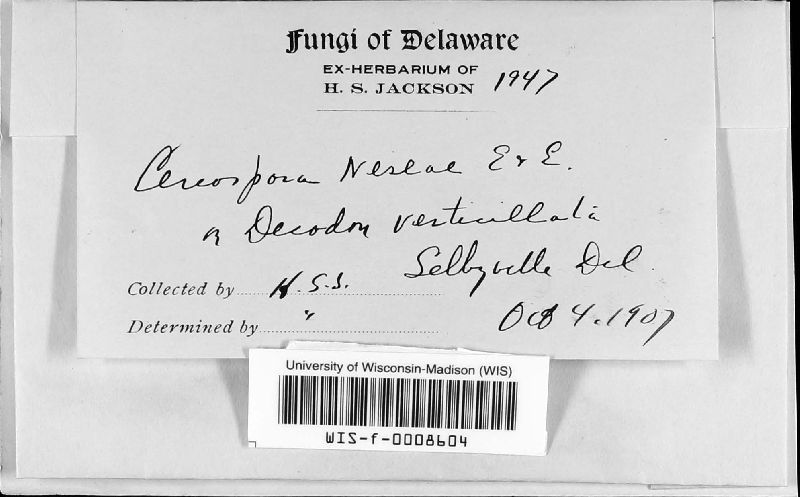 Fungi of Delaware
EX-HERBARIUM OF
H. S. JACKSON 1947
Cercospora Neseae E & E.
on Decodon verticillata
Selbyville Del.
Collected by H. S. J.
Determined by "
Oct 4. 1907
University of Wisconsin-Madison (WIS)
WIS-f-0008604